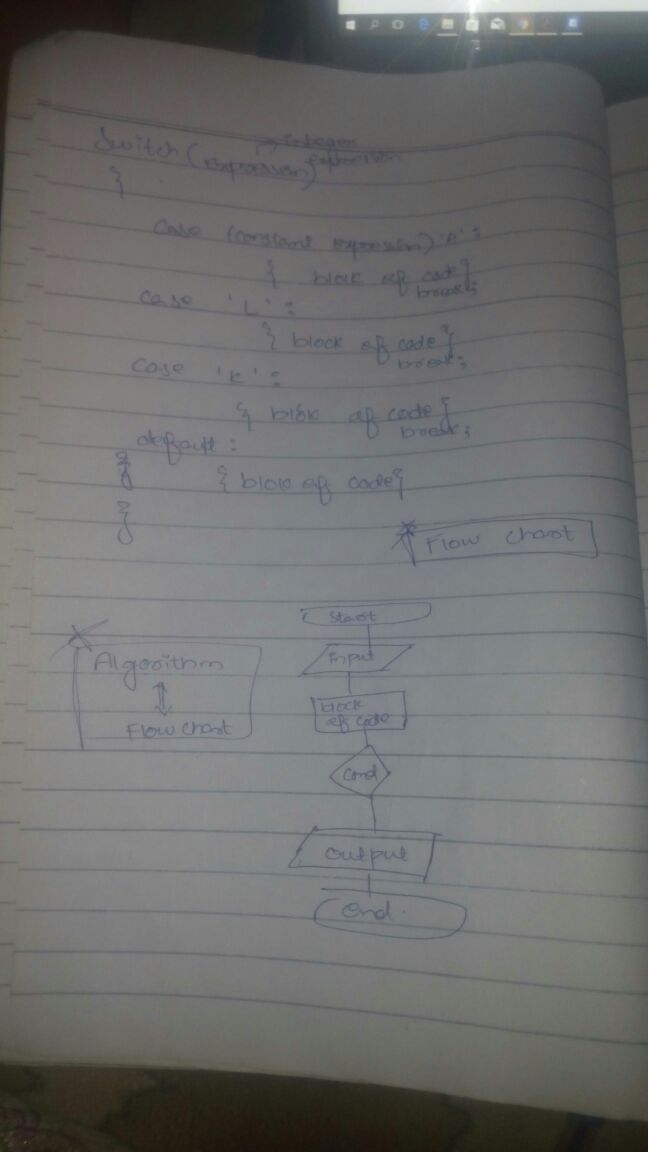 Switch (expression)
→ integer
expression
{
case (constant expression) 'A' :
{ block of code}
break;
case 'L' :
{ block of code}
break;
case 'K' :
{ block of code}
break;
default :
{ block of code}
}
Flow chart
Start
Input
block
of code
Cond
output
end.
Algorithm
⇕
Flow chart